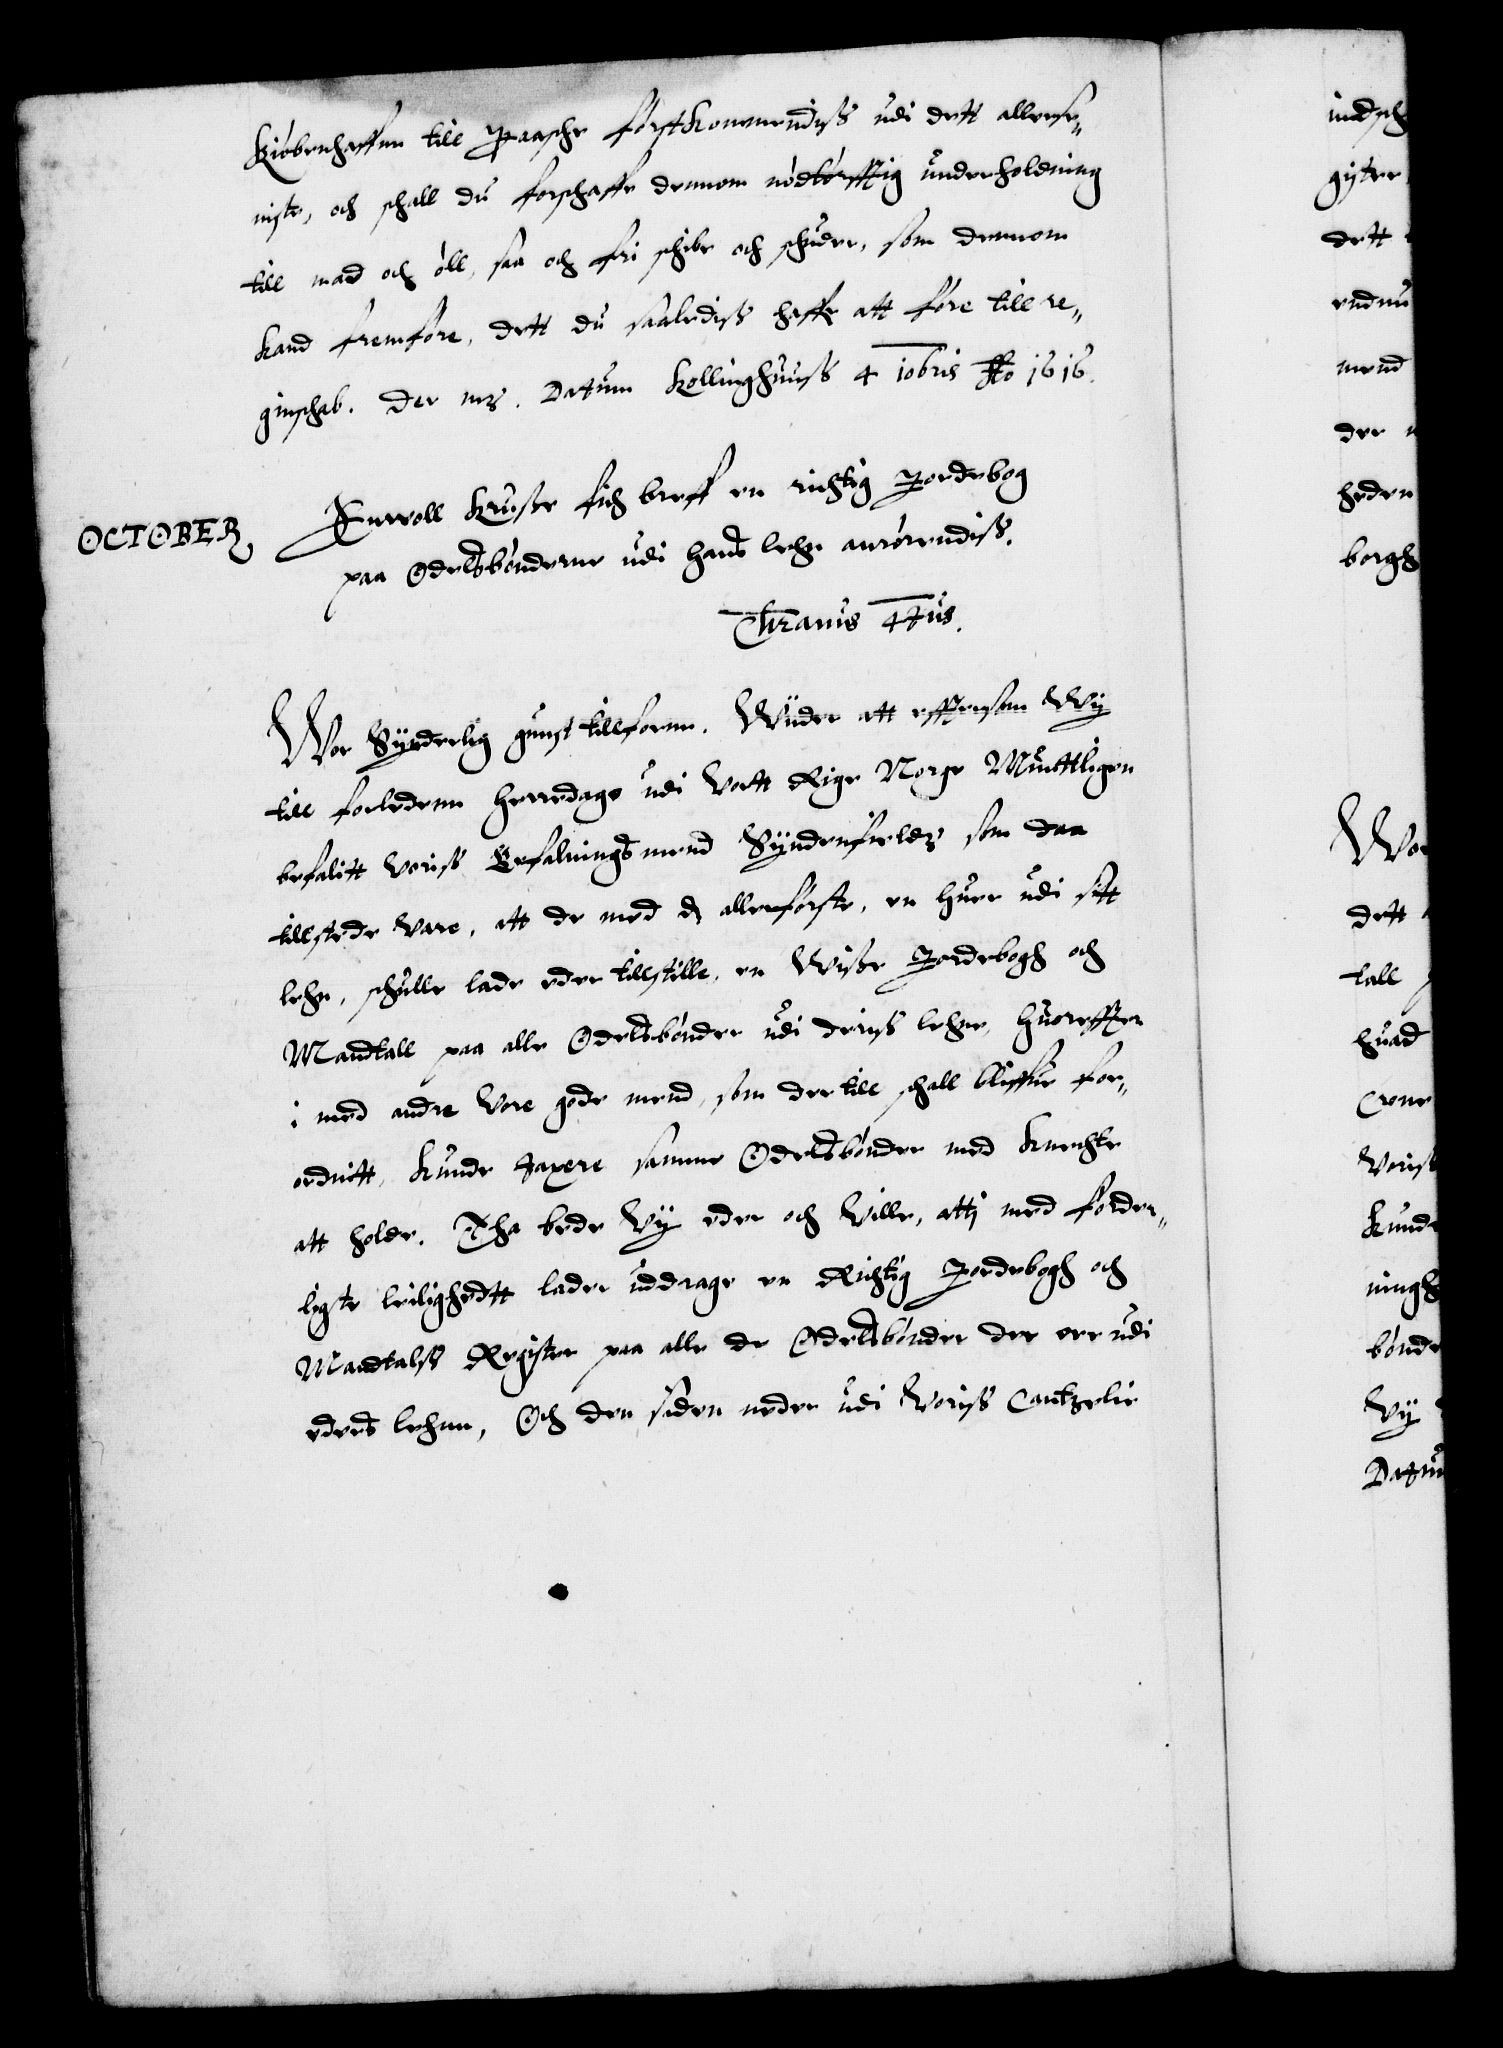 Kiøbenhaffun till Paasche førstkommendiss udi dett allerse¬
niste, och schall du forschaffe dennom nødtørfftig underholdning
till mad och øll, saa och fri schibe och schuder, som dennom
kand fremføre, dett du saalediss haffr att føre till re¬
ginschab. Der m3. Datum Kollinghuuss 4 10bris Ao 1616.
OCTOBER
Enevoll Krusse fich breff en richtig Jordebog
paa Odelsbønderne udi hans lehn anrørendiss.
Chranus 4tus.
Wor Synderlig gunst tillfornn. Wiider att effttersom Wy
till forledenn Herredage udi Vortt Rige Norge Munttligen
befalitt Voriss Befalningsmend Syndenfields som daa
tillstede Vare, att de med dz allerførste, en huer udi sitt
lehn, schulle lade eder tillstille, en Wisse Jordebogh och
Mandtall paa alle Odelsbønder udi deriss lehne, huoreffter
i med andre Vore gode mend, som der till schall bliffue for¬
ordnitt, kunde taxere samme Odelsbønder med knechte
att holde. Tha bede Wy eder och Wille, atti med forder¬
ligste leilighedtt lader uddrage en Richtig Jordebogh och
Mandtalss Register paa alle de Odelsbønder der ere udi
eders lehnn, Och den siden neder udi Voriss Cantzelie
indsch
gifter
dett
endnu
mend
der
heden
borgh
Wor
dett
tall
huad
Crone
Voriss
kunde
ningh
bønde
Wy
Datum